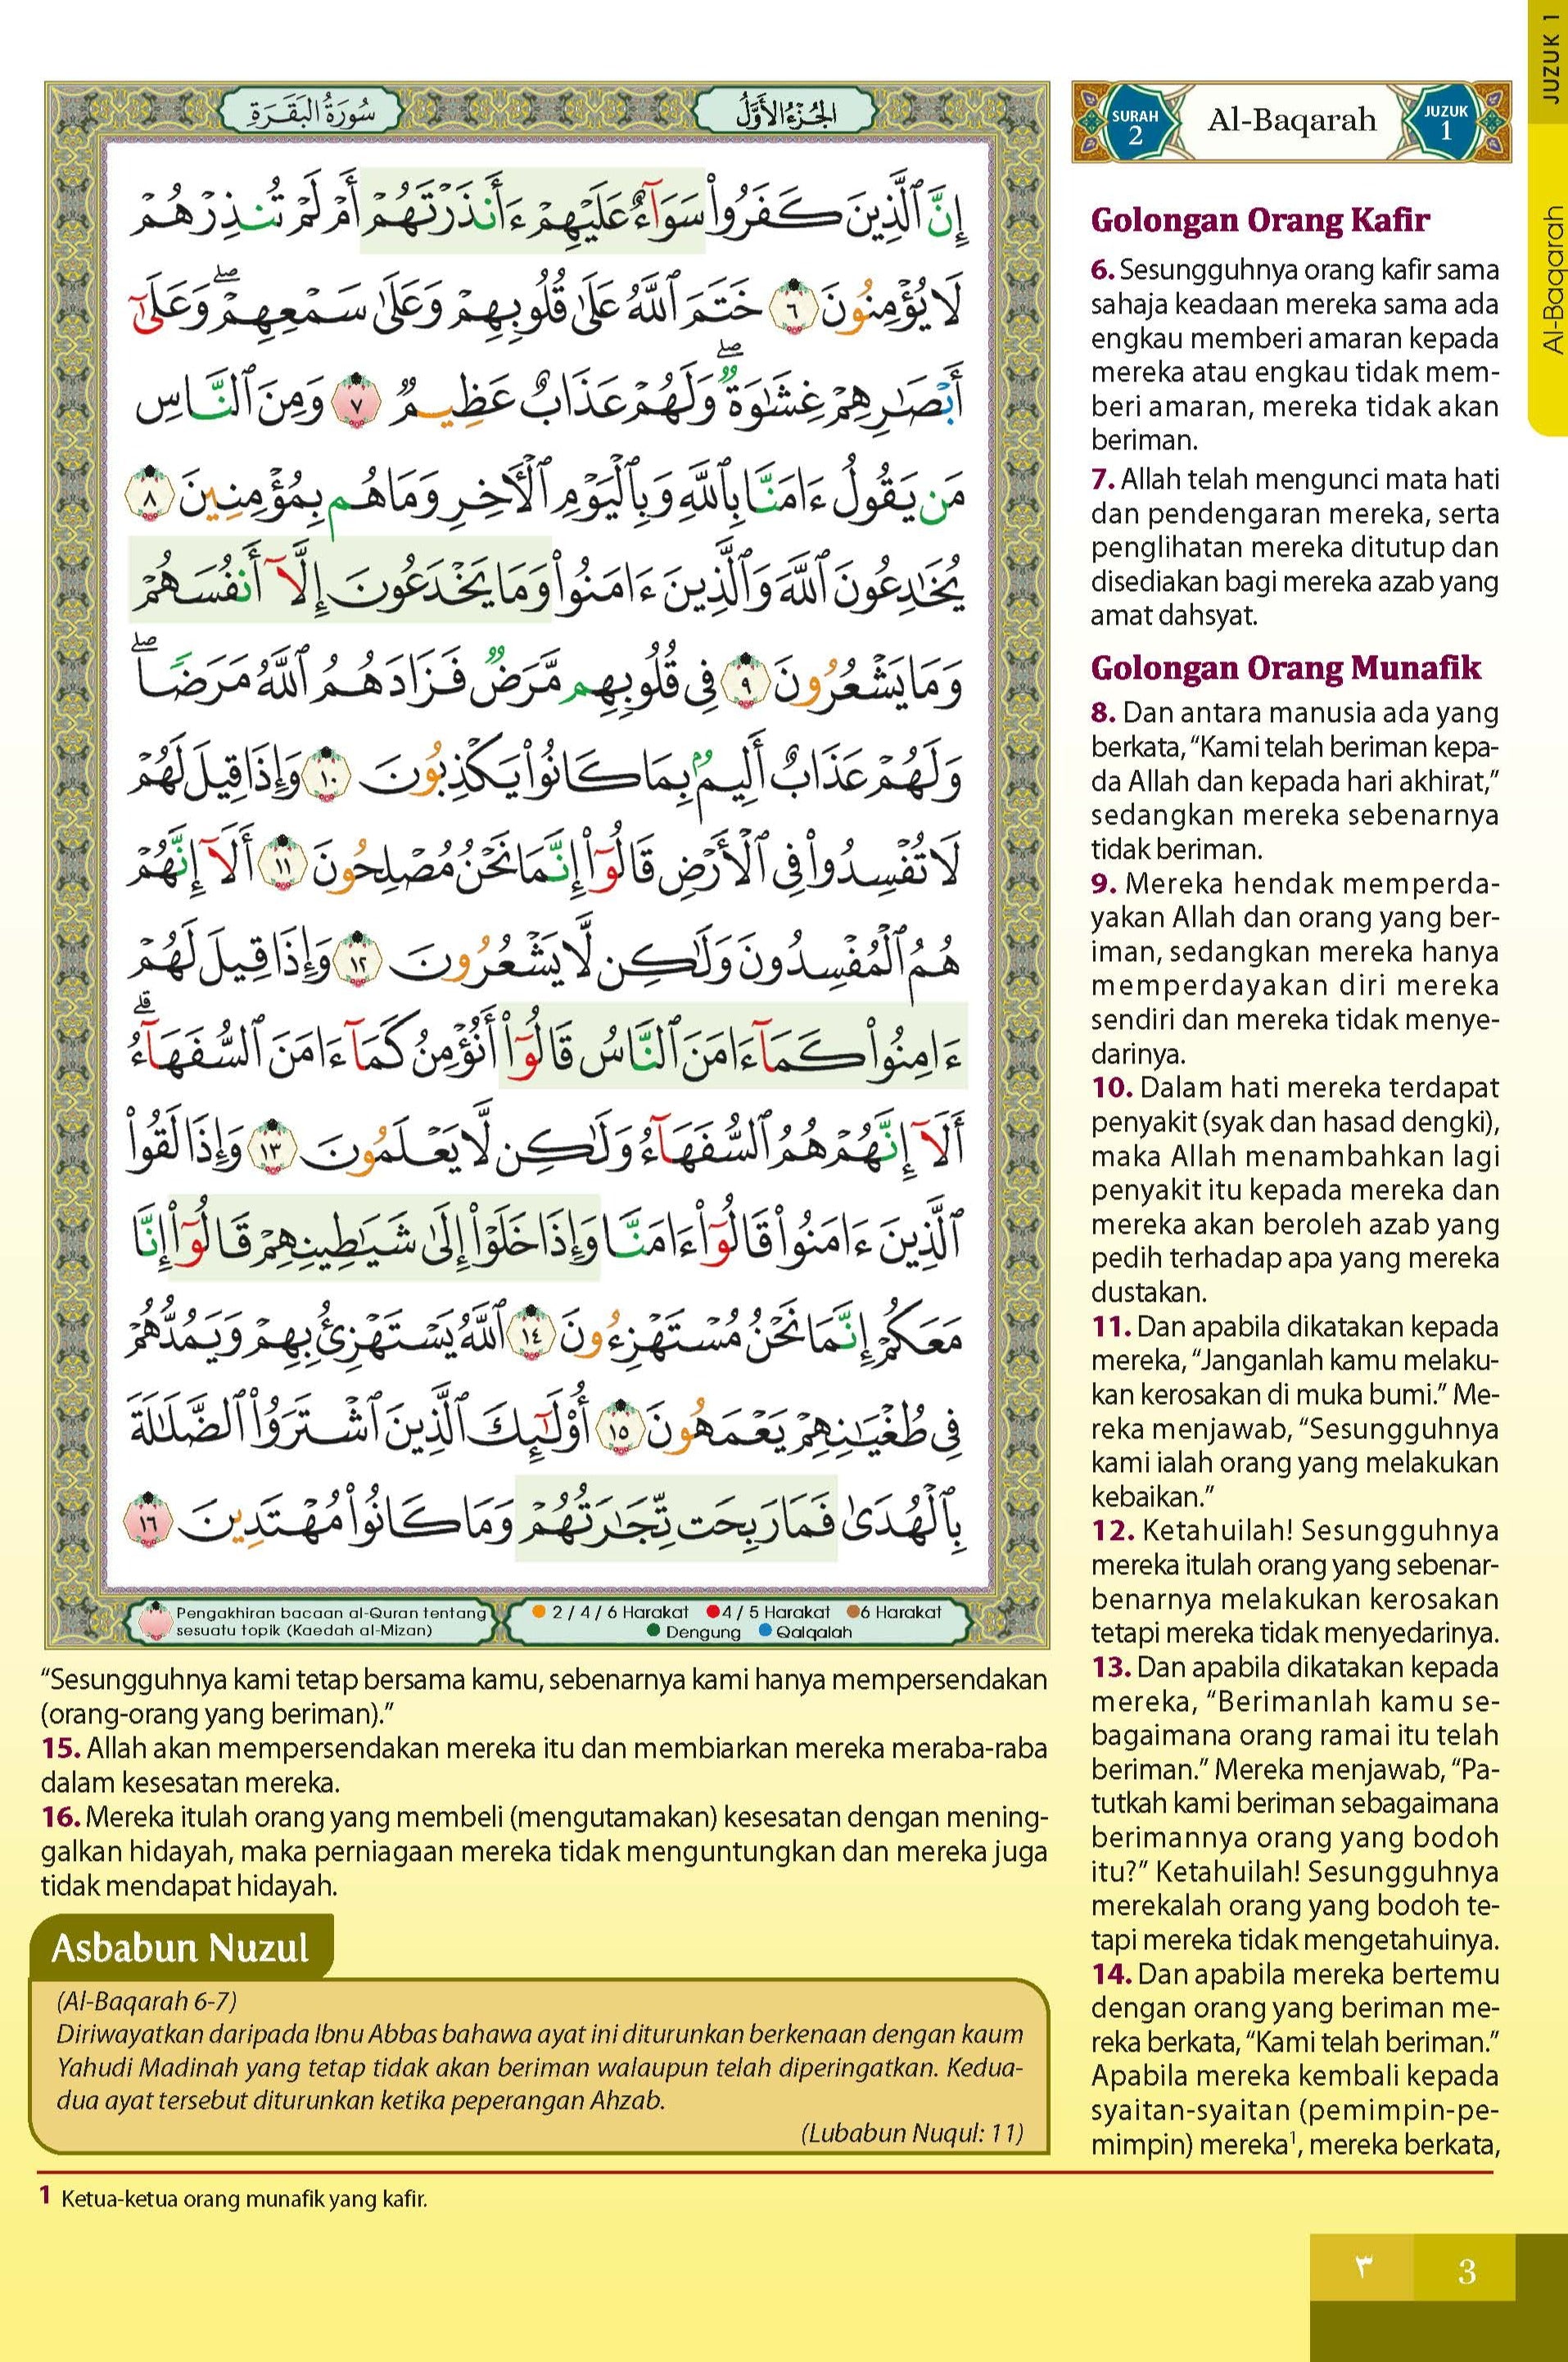 سُورَةُ الْبَقَرَةِ
الجُزْءُ الأَوَّلُ
إِنَّ ٱلَّذِينَ كَفَرُوا۟ سَوَآءٌ عَلَيْهِمْ ءَأَنذَرْتَهُمْ أَمْ لَمْ تُنذِرْهُمْ
لَا يُؤْمِنُونَ ٦ خَتَمَ ٱللَّهُ عَلَىٰ قُلُوبِهِمْ وَعَلَىٰ سَمْعِهِمْ ۖ وَعَلَىٰٓ
أَبْصَـٰرِهِمْ غِشَـٰوَةٌ ۖ وَلَهُمْ عَذَابٌ عَظِيمٌ ٧ وَمِنَ ٱلنَّاسِ
مَن يَقُولُ ءَامَنَّا بِٱللَّهِ وَبِٱلْيَوْمِ ٱلْـَٔاخِرِ وَمَا هُم بِمُؤْمِنِينَ ٨
يُخَـٰدِعُونَ ٱللَّهَ وَٱلَّذِينَ ءَامَنُوا۟ وَمَا يَخْدَعُونَ إِلَّآ أَنفُسَهُمْ
وَمَا يَشْعُرُونَ ٩ فِى قُلُوبِهِم مَّرَضٌ فَزَادَهُمُ ٱللَّهُ مَرَضًا ۖ
وَلَهُمْ عَذَابٌ أَلِيمٌۢ بِمَا كَانُوا۟ يَكْذِبُونَ ١٠ وَإِذَا قِيلَ لَهُمْ
لَا تُفْسِدُوا۟ فِى ٱلْأَرْضِ قَالُوٓا۟ إِنَّمَا نَحْنُ مُصْلِحُونَ ١١ أَلَآ إِنَّهُمْ
هُمُ ٱلْمُفْسِدُونَ وَلَـٰكِن لَّا يَشْعُرُونَ ١٢ وَإِذَا قِيلَ لَهُمْ
ءَامِنُوا۟ كَمَآ ءَامَنَ ٱلنَّاسُ قَالُوٓا۟ أَنُؤْمِنُ كَمَآ ءَامَنَ ٱلسُّفَهَآءُ ۗ
أَلَآ إِنَّهُمْ هُمُ ٱلسُّفَهَآءُ وَلَـٰكِن لَّا يَعْلَمُونَ ١٣ وَإِذَا لَقُوا۟
ٱلَّذِينَ ءَامَنُوا۟ قَالُوٓا۟ ءَامَنَّا وَإِذَا خَلَوْا۟ إِلَىٰ شَيَـٰطِينِهِمْ قَالُوٓا۟ إِنَّا
مَعَكُمْ إِنَّمَا نَحْنُ مُسْتَهْزِءُونَ ١٤ ٱللَّهُ يَسْتَهْزِئُ بِهِمْ وَيَمُدُّهُمْ
فِى طُغْيَـٰنِهِمْ يَعْمَهُونَ ١٥ أُو۟لَـٰٓئِكَ ٱلَّذِينَ ٱشْتَرَوُا۟ ٱلضَّلَـٰلَةَ
بِٱلْهُدَىٰ فَمَا رَبِحَت تِّجَـٰرَتُهُمْ وَمَا كَانُوا۟ مُهْتَدِينَ ١٦
Pengakhiran bacaan al-Quran tentang
sesuatu topik (Kaedah al-Mizan)
2 / 4 / 6 Harakat 4 / 5 Harakat 6 Harakat
Dengung Qalqalah
JUZUK 1
Al-Baqarah
SURAH
2
Al-Baqarah
JUZUK
1
Golongan Orang Kafir
6. Sesungguhnya orang kafir sama
sahaja keadaan mereka sama ada
engkau memberi amaran kepada
mereka atau engkau tidak mem-
beri amaran, mereka tidak akan
beriman.
7. Allah telah mengunci mata hati
dan pendengaran mereka, serta
penglihatan mereka ditutup dan
disediakan bagi mereka azab yang
amat dahsyat.
Golongan Orang Munafik
8. Dan antara manusia ada yang
berkata, “Kami telah beriman kepa-
da Allah dan kepada hari akhirat,”
sedangkan mereka sebenarnya
tidak beriman.
9. Mereka hendak memperda-
yakan Allah dan orang yang ber-
iman, sedangkan mereka hanya
memperdayakan diri mereka
sendiri dan mereka tidak menye-
darinya.
10. Dalam hati mereka terdapat
penyakit (syak dan hasad dengki),
maka Allah menambahkan lagi
penyakit itu kepada mereka dan
mereka akan beroleh azab yang
pedih terhadap apa yang mereka
dustakan.
11. Dan apabila dikatakan kepada
mereka, “Janganlah kamu melaku-
kan kerosakan di muka bumi.” Me-
reka menjawab, “Sesungguhnya
kami ialah orang yang melakukan
kebaikan.”
12. Ketahuilah! Sesungguhnya
mereka itulah orang yang sebenar-
benarnya melakukan kerosakan
tetapi mereka tidak menyedarinya.
13. Dan apabila dikatakan kepada
mereka, “Berimanlah kamu se-
bagaimana orang ramai itu telah
beriman.” Mereka menjawab, “Pa-
tutkah kami beriman sebagaimana
berimannya orang yang bodoh
itu?” Ketahuilah! Sesungguhnya
merekalah orang yang bodoh te-
tapi mereka tidak mengetahuinya.
14. Dan apabila mereka bertemu
dengan orang yang beriman me-
reka berkata, “Kami telah beriman.”
Apabila mereka kembali kepada
syaitan-syaitan (pemimpin-pe-
mimpin) mereka¹, mereka berkata,
“Sesungguhnya kami tetap bersama kamu, sebenarnya kami hanya mempersendakan
(orang-orang yang beriman).”
15. Allah akan mempersendakan mereka itu dan membiarkan mereka meraba-raba
dalam kesesatan mereka.
16. Mereka itulah orang yang membeli (mengutamakan) kesesatan dengan mening-
galkan hidayah, maka perniagaan mereka tidak menguntungkan dan mereka juga
tidak mendapat hidayah.
Asbabun Nuzul
(Al-Baqarah 6-7)
Diriwayatkan daripada Ibnu Abbas bahawa ayat ini diturunkan berkenaan dengan kaum
Yahudi Madinah yang tetap tidak akan beriman walaupun telah diperingatkan. Kedua-
dua ayat tersebut diturunkan ketika peperangan Ahzab.
(Lubabun Nuqul: 11)
1 Ketua-ketua orang munafik yang kafir.
٣
3